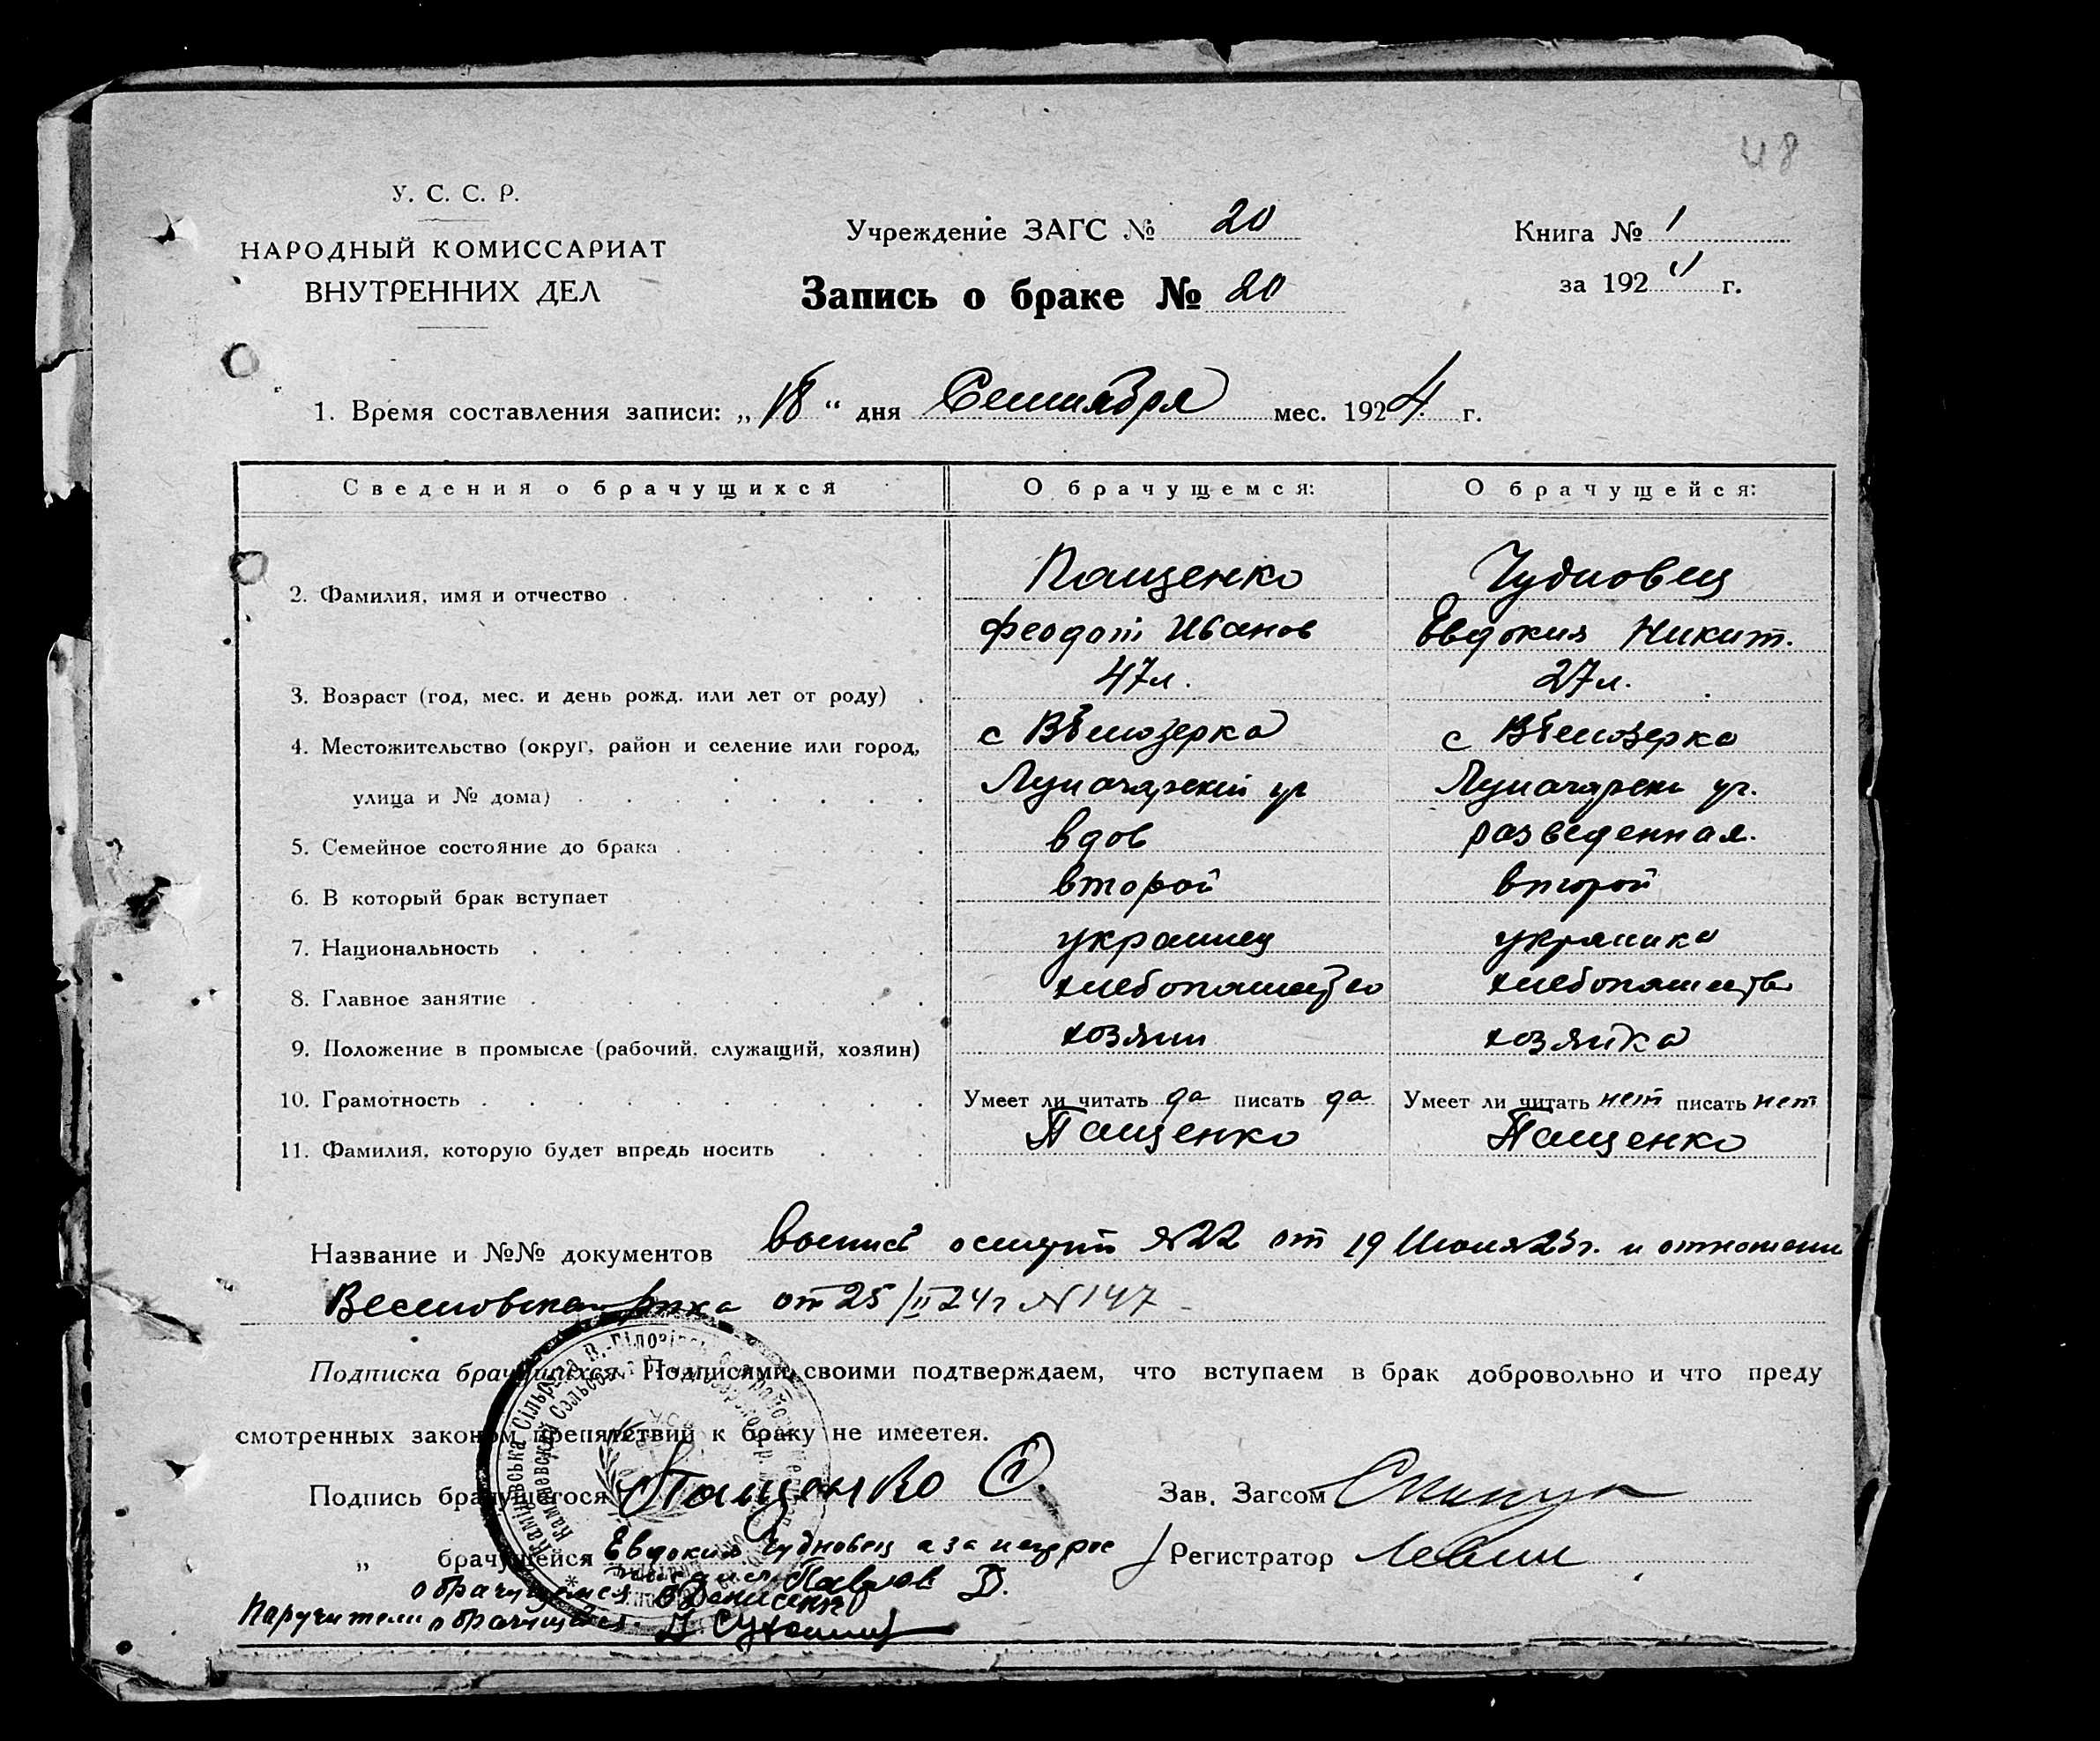 48
У. С. С. Р.
НАРОДНЫЙ КОМИССАРИАТ
ВНУТРЕННИХ ДЕЛ
Учреждение ЗАГС № 20
Книга № 1
Запись о браке № 20
за 192 г.
1. Время составления записи: „18“ дня Сентября мес. 1924 г.
Сведения о брачущихся О брачущемся: О брачущейся:
Пащенко Чудновец
2. Фамилия, имя и отчество
Феодот Иванов Евдокия Никит.
3. Возраст (год, мес. и день рожд. или лет от роду) 47 л. 27 л.
4. Местожительство (округ, район и селение или город, с Вбелозерка с Вбелозерка
улица и № дома) Луначарский ул Луначарск ул.
5. Семейное состояние до брака вдов разведенная.
6. В который брак вступает второй второй
7. Национальность украинец украинка
8. Главное занятие хлебопашество хлебопашество
9. Положение в промысле (рабочий, служащий, хозяин) хозяин хозяйка
10. Грамотность Умеет ли читать да писать да Умеет ли читать нет писать нет
11. Фамилия, которую будет впредь носить Пащенко Пащенко
Название и №№ документов №22 от 19 23г. и
от 25/II 24г №147
Подписка брачущихся. Подписями своими подтверждаем, что вступаем в брак добровольно и что преду
смотренных законом препятствий к браку не имеется.
Подпись брачущегося Пащенко Ф. Зав. Загсом
„ брачущейся Евдокия Чудновец а за неграс Регистратор Левин
Павлов Д.
о брачущемся Денисенко
Наручители о брачущейся.
Камінівська Сільрада В.-Білозірськ
Каменевский Сельсовет